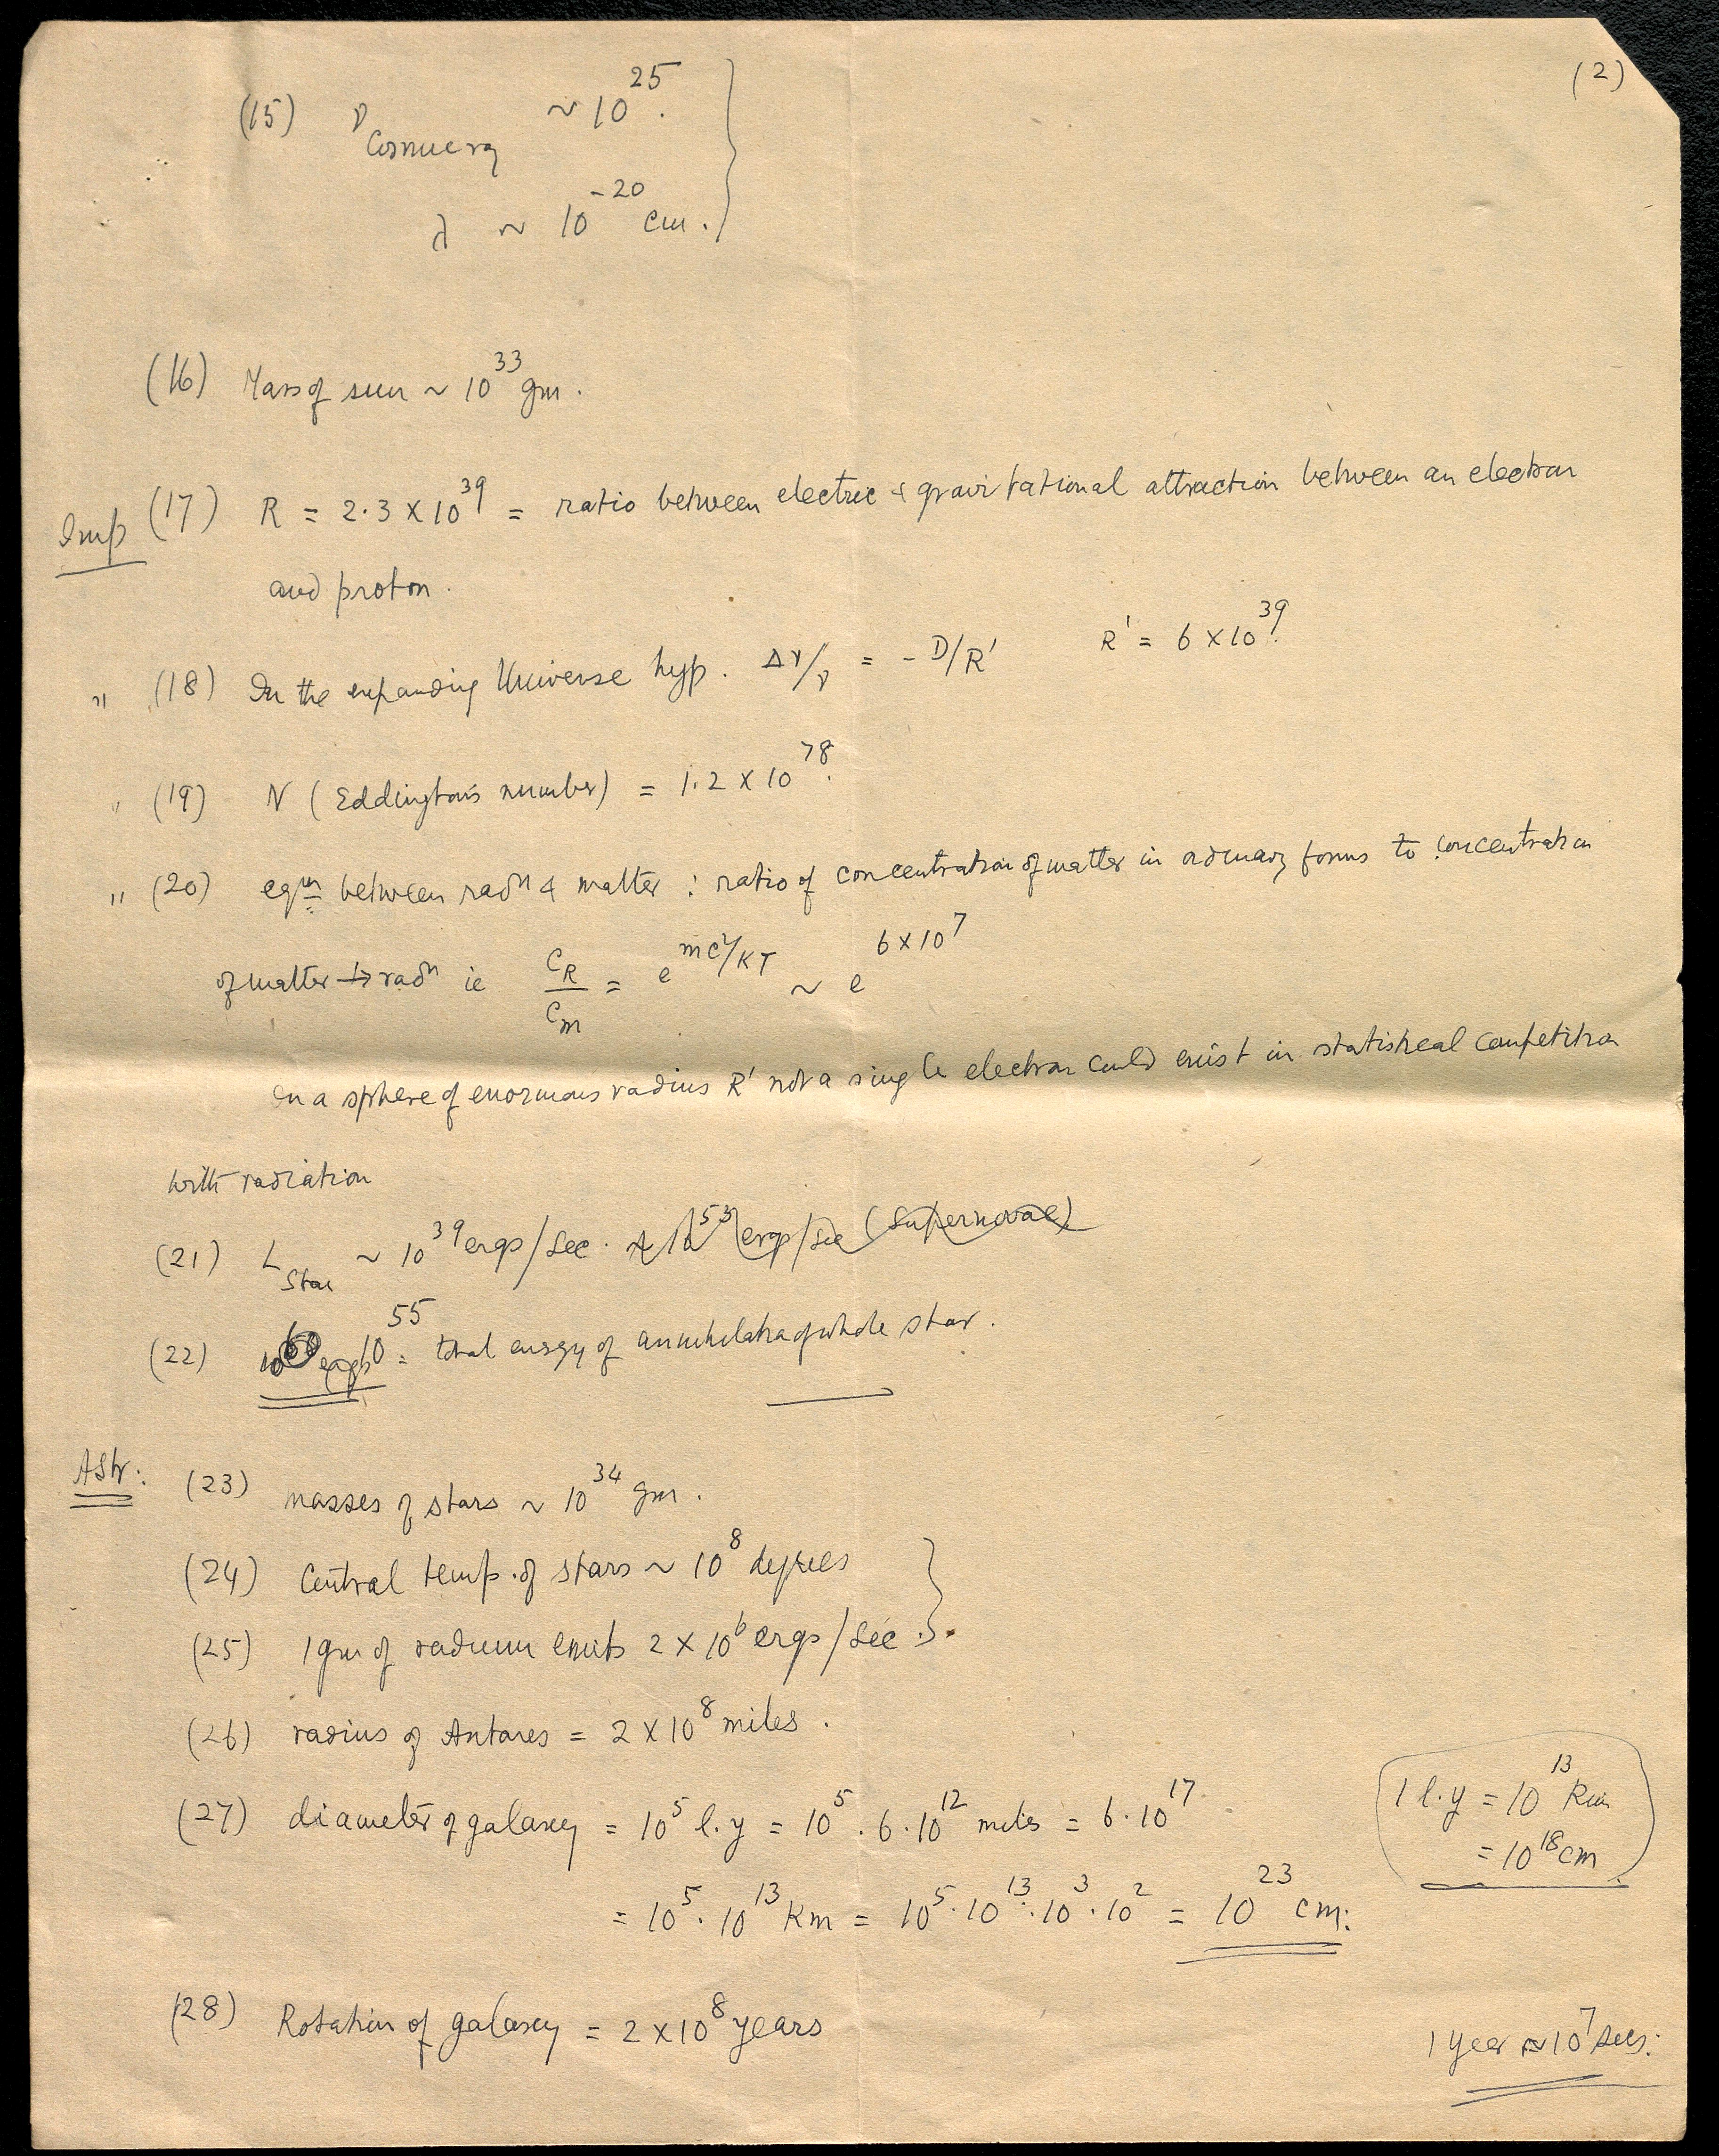 (2)
(15) ν Cosmic ray ~ 10^25.
λ ~ 10^-20 cm.
(16) Mass of sun ~ 10^33 gm.
Imp (17) R = 2.3 × 10^39 = ratio between electric & gravitational attraction between an electron
and proton.
" (18) In the expanding Universe hyp. Δν/ν = - D/R' R' = 6 × 10^39.
" (19) N (Eddington's number) = 1.2 × 10^78.
" (20) eqm between radn & matter : ratio of concentration of matter in ordinary forms to concentration
of matter → radn ie C_R/C_m = e^mc²/KT ~ e^6×10^7
In a sphere of enormous radius R' not a single electron could exist in statistical competition
with radiation
(21) L Star ~ 10^39 ergs/sec. ~~10^53 ergs/sec (Supernovae)~~
(22) 10^55 = total energy of annihilation of whole star.
Astr: (23) masses of stars ~ 10^34 gm.
(24) Central temp. of stars ~ 10^8 degrees
(25) 1 gm of radium emits 2 × 10^6 ergs/sec.
(26) radius of Antares = 2 × 10^8 miles.
(27) diameter of galaxy = 10^5 l.y = 10^5 . 6 . 10^12 miles = 6 . 10^17
1 l.y = 10^13 Km
= 10^18 cm
= 10^5 . 10^13 Km = 10^5 . 10^13 . 10^3 . 10^2 = 10^23 cm.
(28) Rotation of galaxy = 2 × 10^8 years
1 year ≈ 10^7 secs.